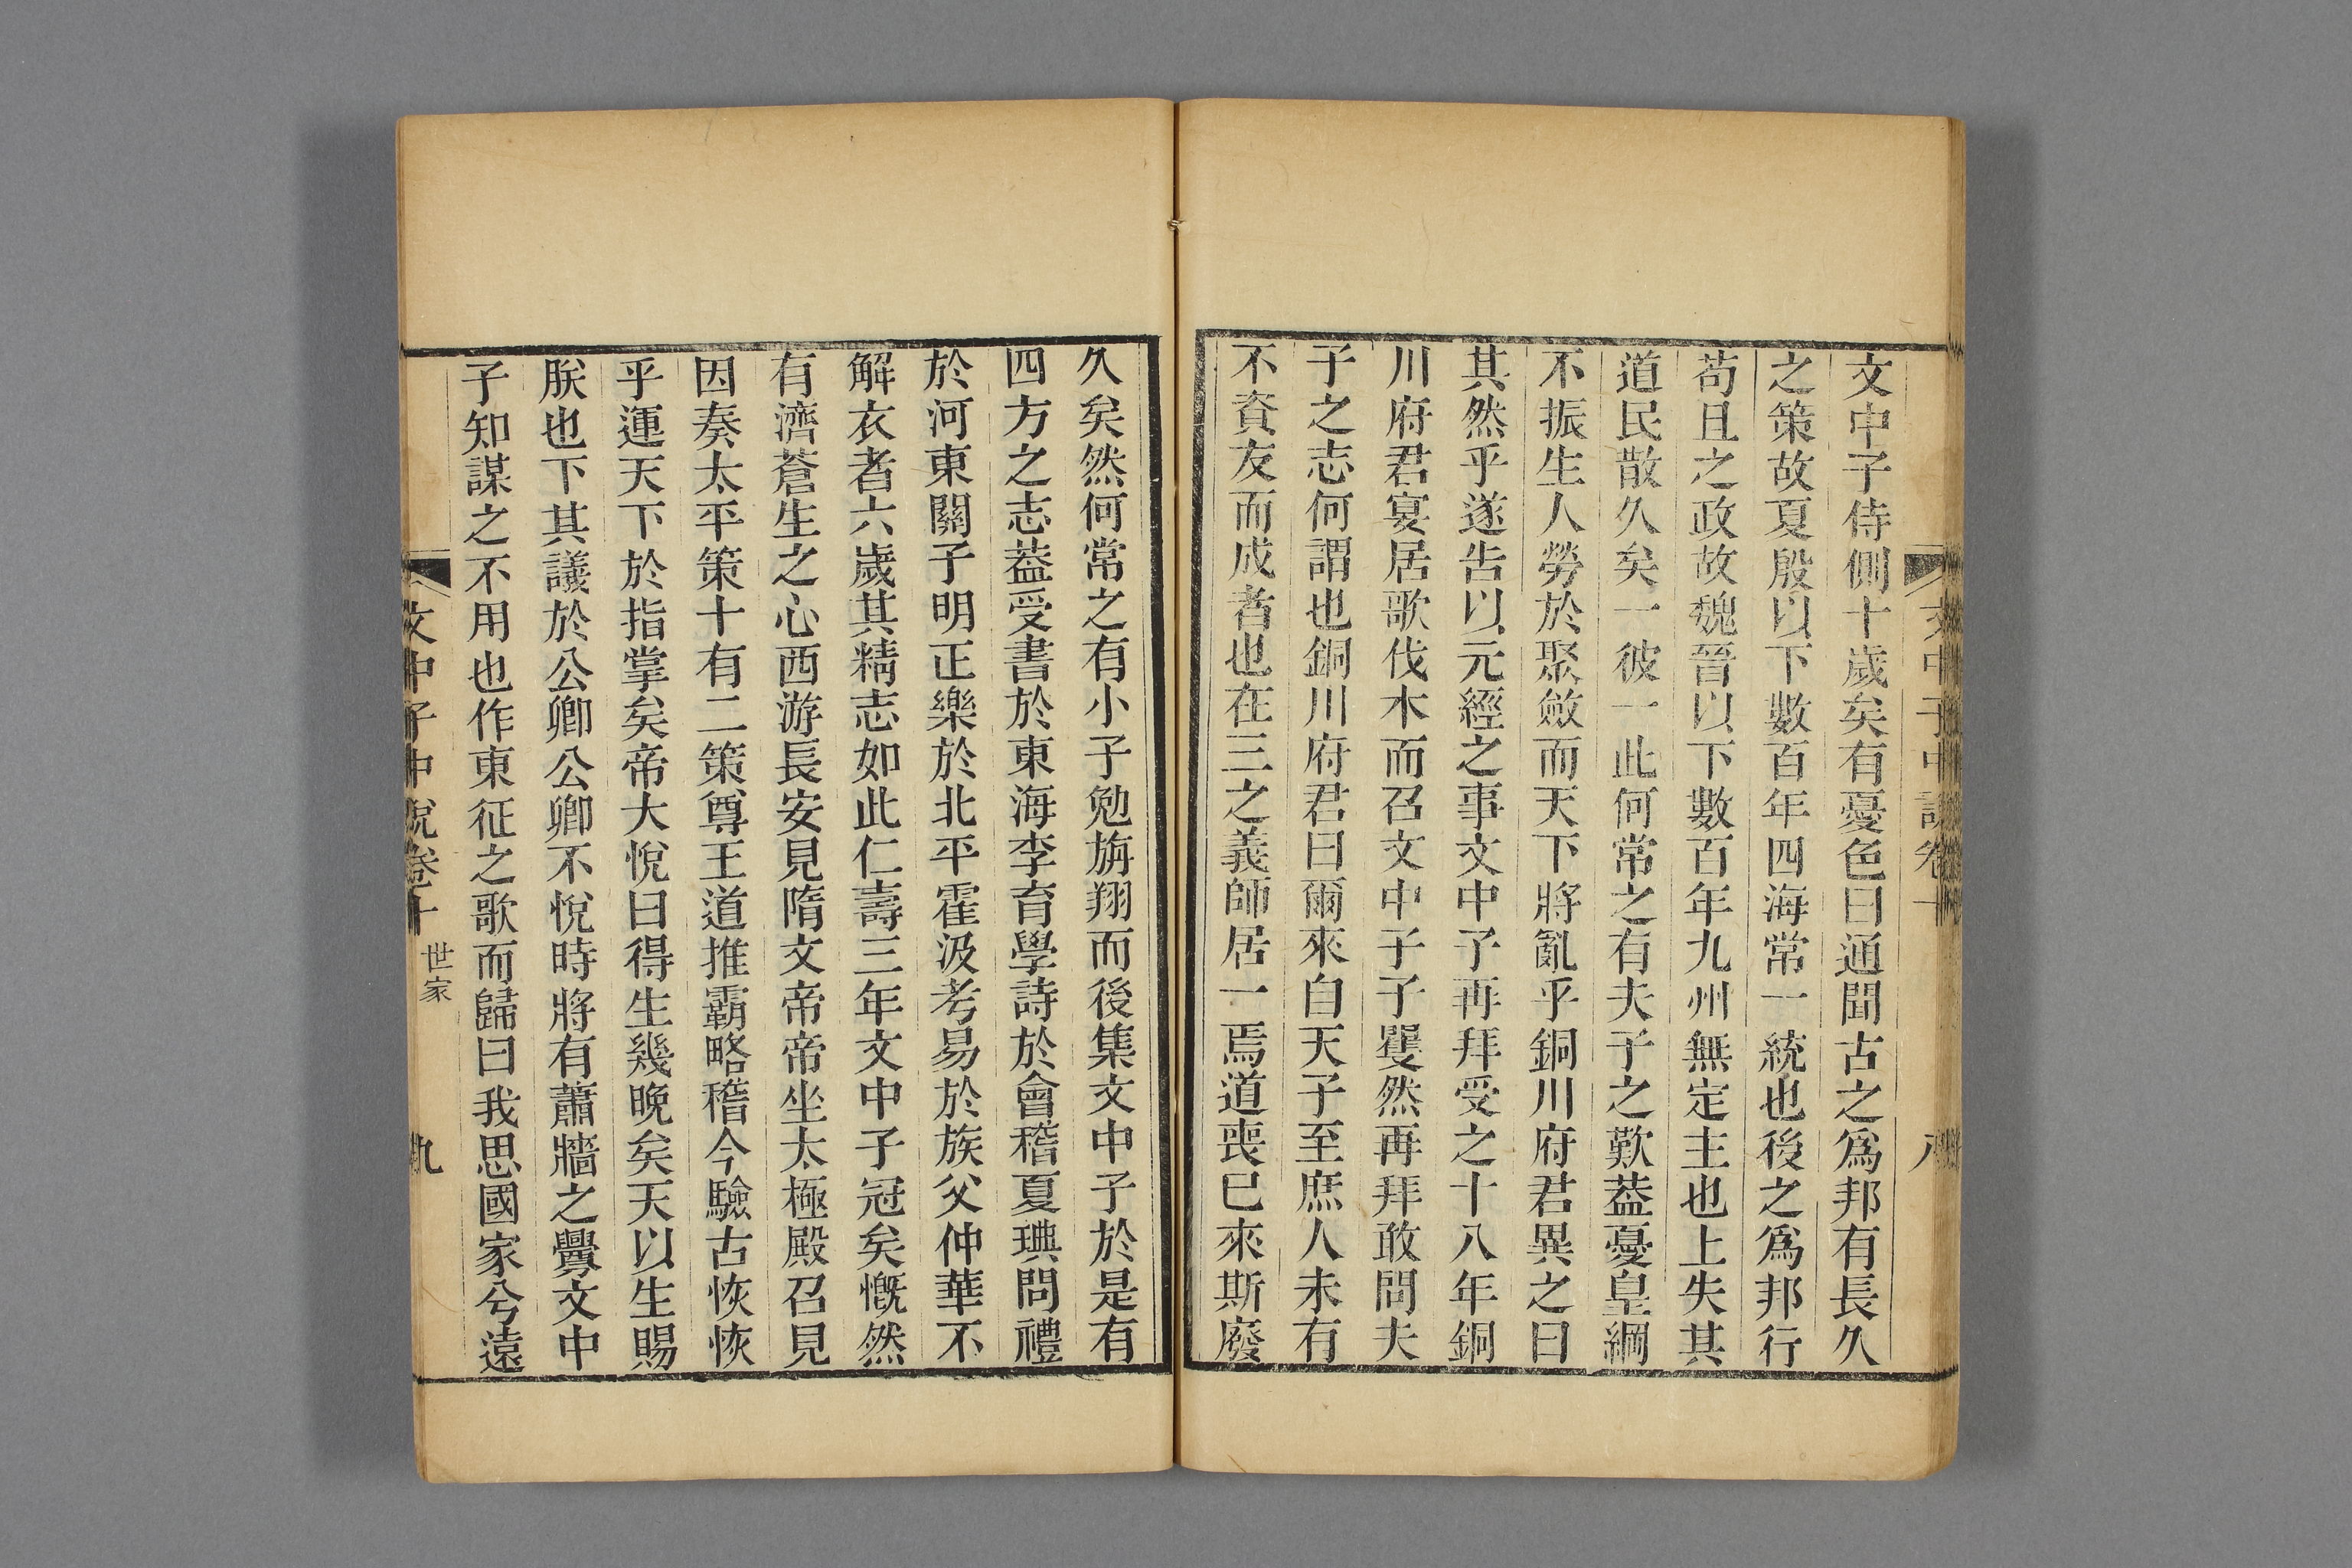 文中子侍側十歲矣有憂色曰通聞古之爲邦有長久
之策故夏殷以下數百年四海常一統也後之爲邦行
苟且之政故魏晉以下數百年九州無定主也上失其
道民散久矣一彼一此何常之有夫子之歎葢憂皇綱
不振生人勞於聚斂而天下將亂乎銅川府君異之曰
其然乎遂告以元經之事文中子再拜受之十八年銅
川府君宴居歌伐木而召文中子子矍然再拜敢問夫
子之志何謂也銅川府君曰爾來自天子至庶人未有
不資友而成者也在三之義師居一焉道喪已來斯廢
久矣然何常之有小子勉旃翔而後集文中子於是有
四方之志葢受書於東海李育學詩於會稽夏琠問禮
於河東關子明正樂於北平霍汲考易於族父仲華不
解衣者六歲其精志如此仁壽三年文中子冠矣慨然
有濟蒼生之心西游長安見隋文帝帝坐太極殿召見
因奏太平策十有二策尊王道推霸略稽今驗古恢恢
乎運天下於指掌矣帝大悅曰得生幾晚矣天以生賜
朕也下其議於公卿公卿不悅時將有蕭牆之釁文中
子知謀之不用也作東征之歌而歸曰我思國家兮遠
文中子中說卷十 世家 九